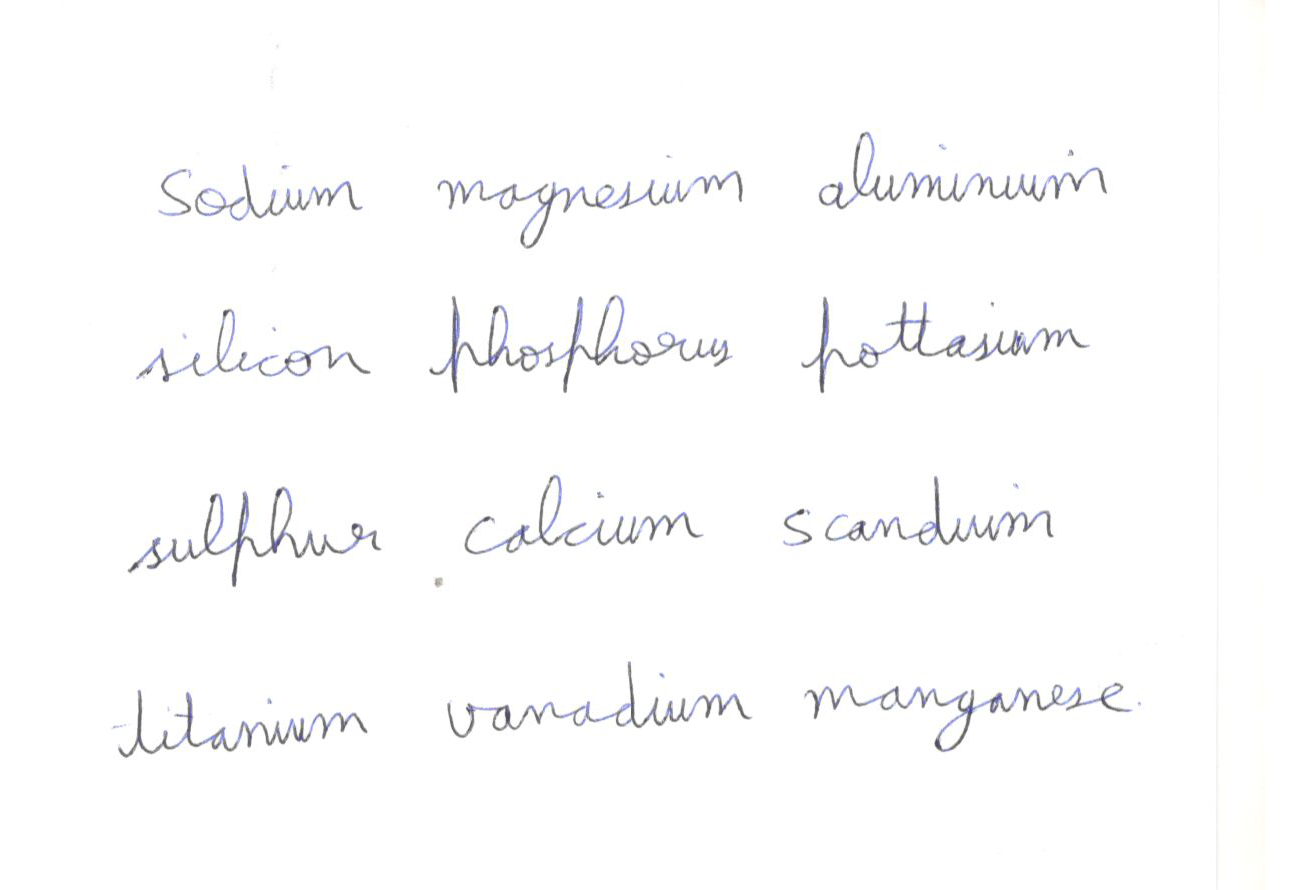 Sodium magnesium aluminium
silicon phosphorus pottasium
sulphur calcium scandium
titanium vanadium manganese.